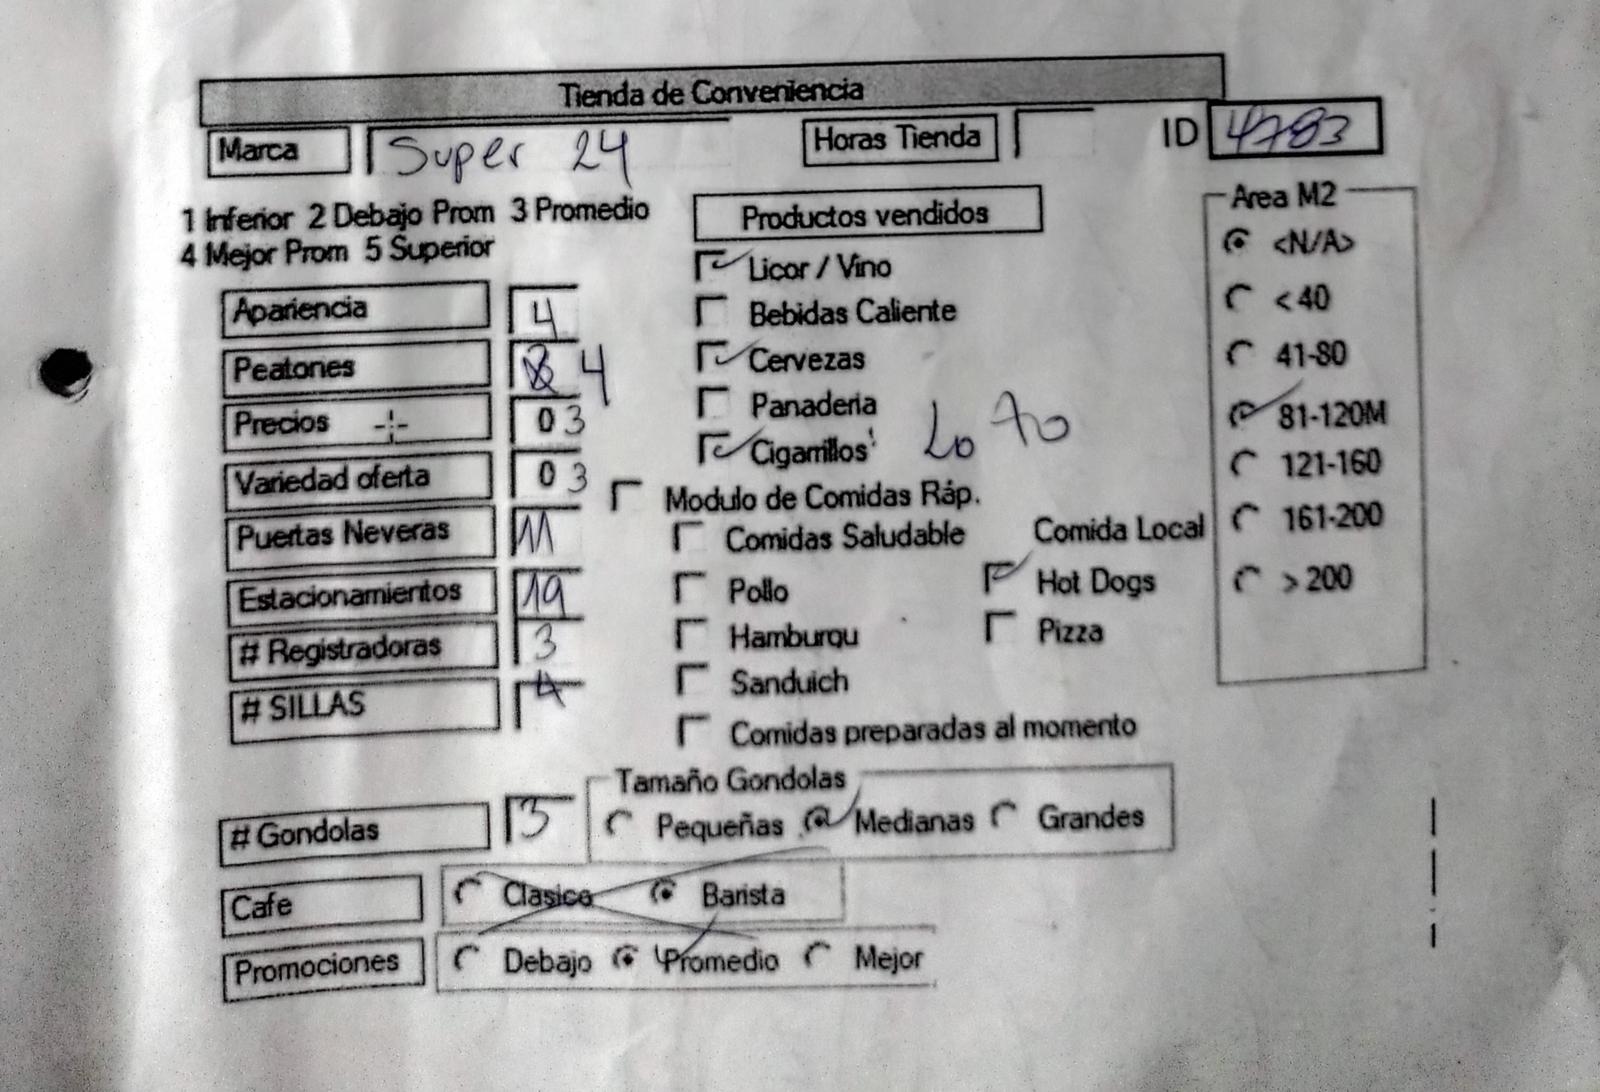 Tienda de Conveniencia
Marca Super 24 Horas Tienda ID 4783
1 Inferior 2 Debajo Prom 3 Promedio
4 Mejor Prom 5 Superior
Productos vendidos
Area M2
<N/A>
< 40
41-80
81-120M
121-160
161-200
> 200
Apariencia 4
Peatones 4
Precios 0 3
Variedad oferta 0 3
Puertas Neveras 11
Estacionamientos 19
# Registradoras 3
# SILLAS 4
Licor / Vino
Bebidas Caliente
Cervezas
Panaderia
Cigarrillos Loto
Modulo de Comidas Ráp.
Comidas Saludable Comida Local
Pollo Hot Dogs
Hamburqu Pizza
Sanduich
Comidas preparadas al momento
# Gondolas 3
Tamaño Gondolas
Pequeñas Medianas Grandes
Cafe Clasico Barista
Promociones Debajo Promedio Mejor